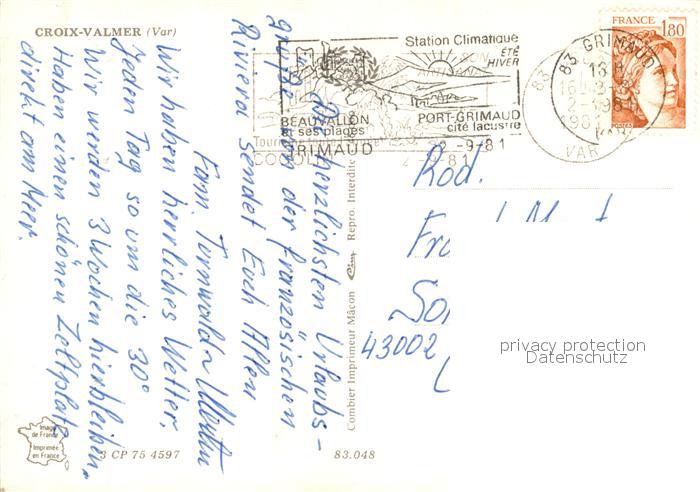 CROIX-VALMER (Var)
Die herzlichsten Urlaubs-
grüße von der französischen
Riviera sendet Euch Allen
Fam.
Wir haben herrliches Wetter.
Jeden Tag so um die 30°
Wir werden 3 Wochen hierbleiben.
Haben einen schönen Zeltplatz
direkt am Meer.
Station Climatique
ÉTÉ
HIVER
BEAUVALLON
et ses plages
PORT-GRIMAUD
cité lacustre
GRIMAUD
2-9-81
83 GRIMAUD
VAR
FRANCE
1,80
POSTES
Combier Imprimeur Mâcon Cim Repro. Interdite
Rod.
43002
privacy protection
Datenschutz
Image
de France
Imprimée
en France
3 CP 75 4597
83.048